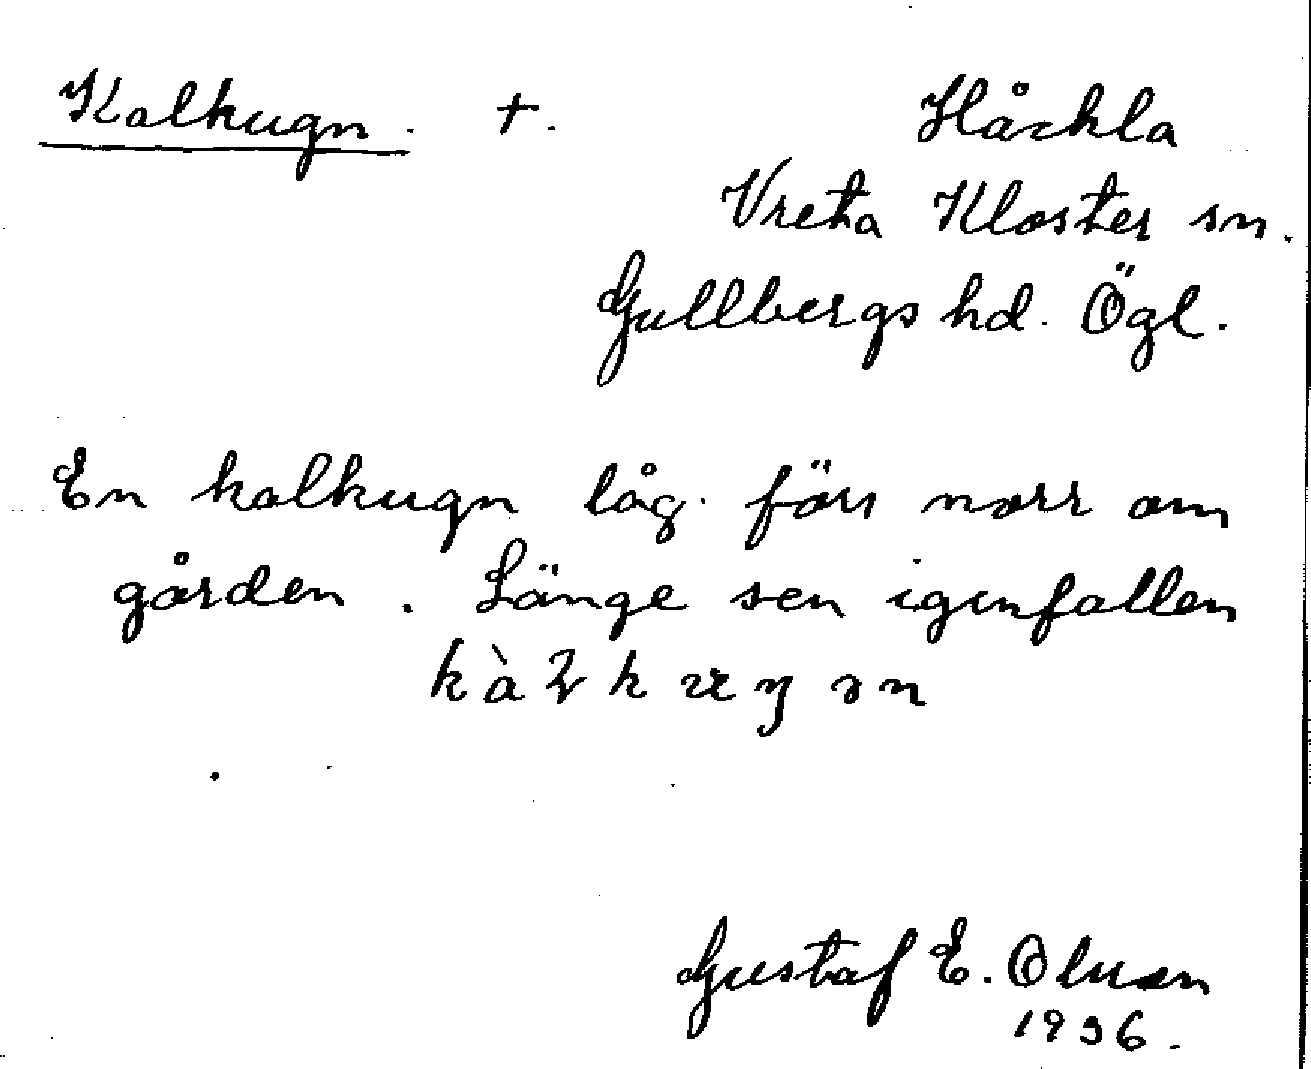 Kalkugn. +. Håckla
Vreta Kloster sn.
Gullbergs hd. Ögl.
En kalkugn låg förr norr om
gården. Länge sen igenfallen
Gustaf E. Olsson
1936.